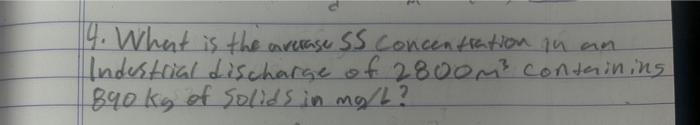 4. What is the average SS Concentration in an
Industrial discharge of 2800m³ containing
890 kg of Solids in mg/L?